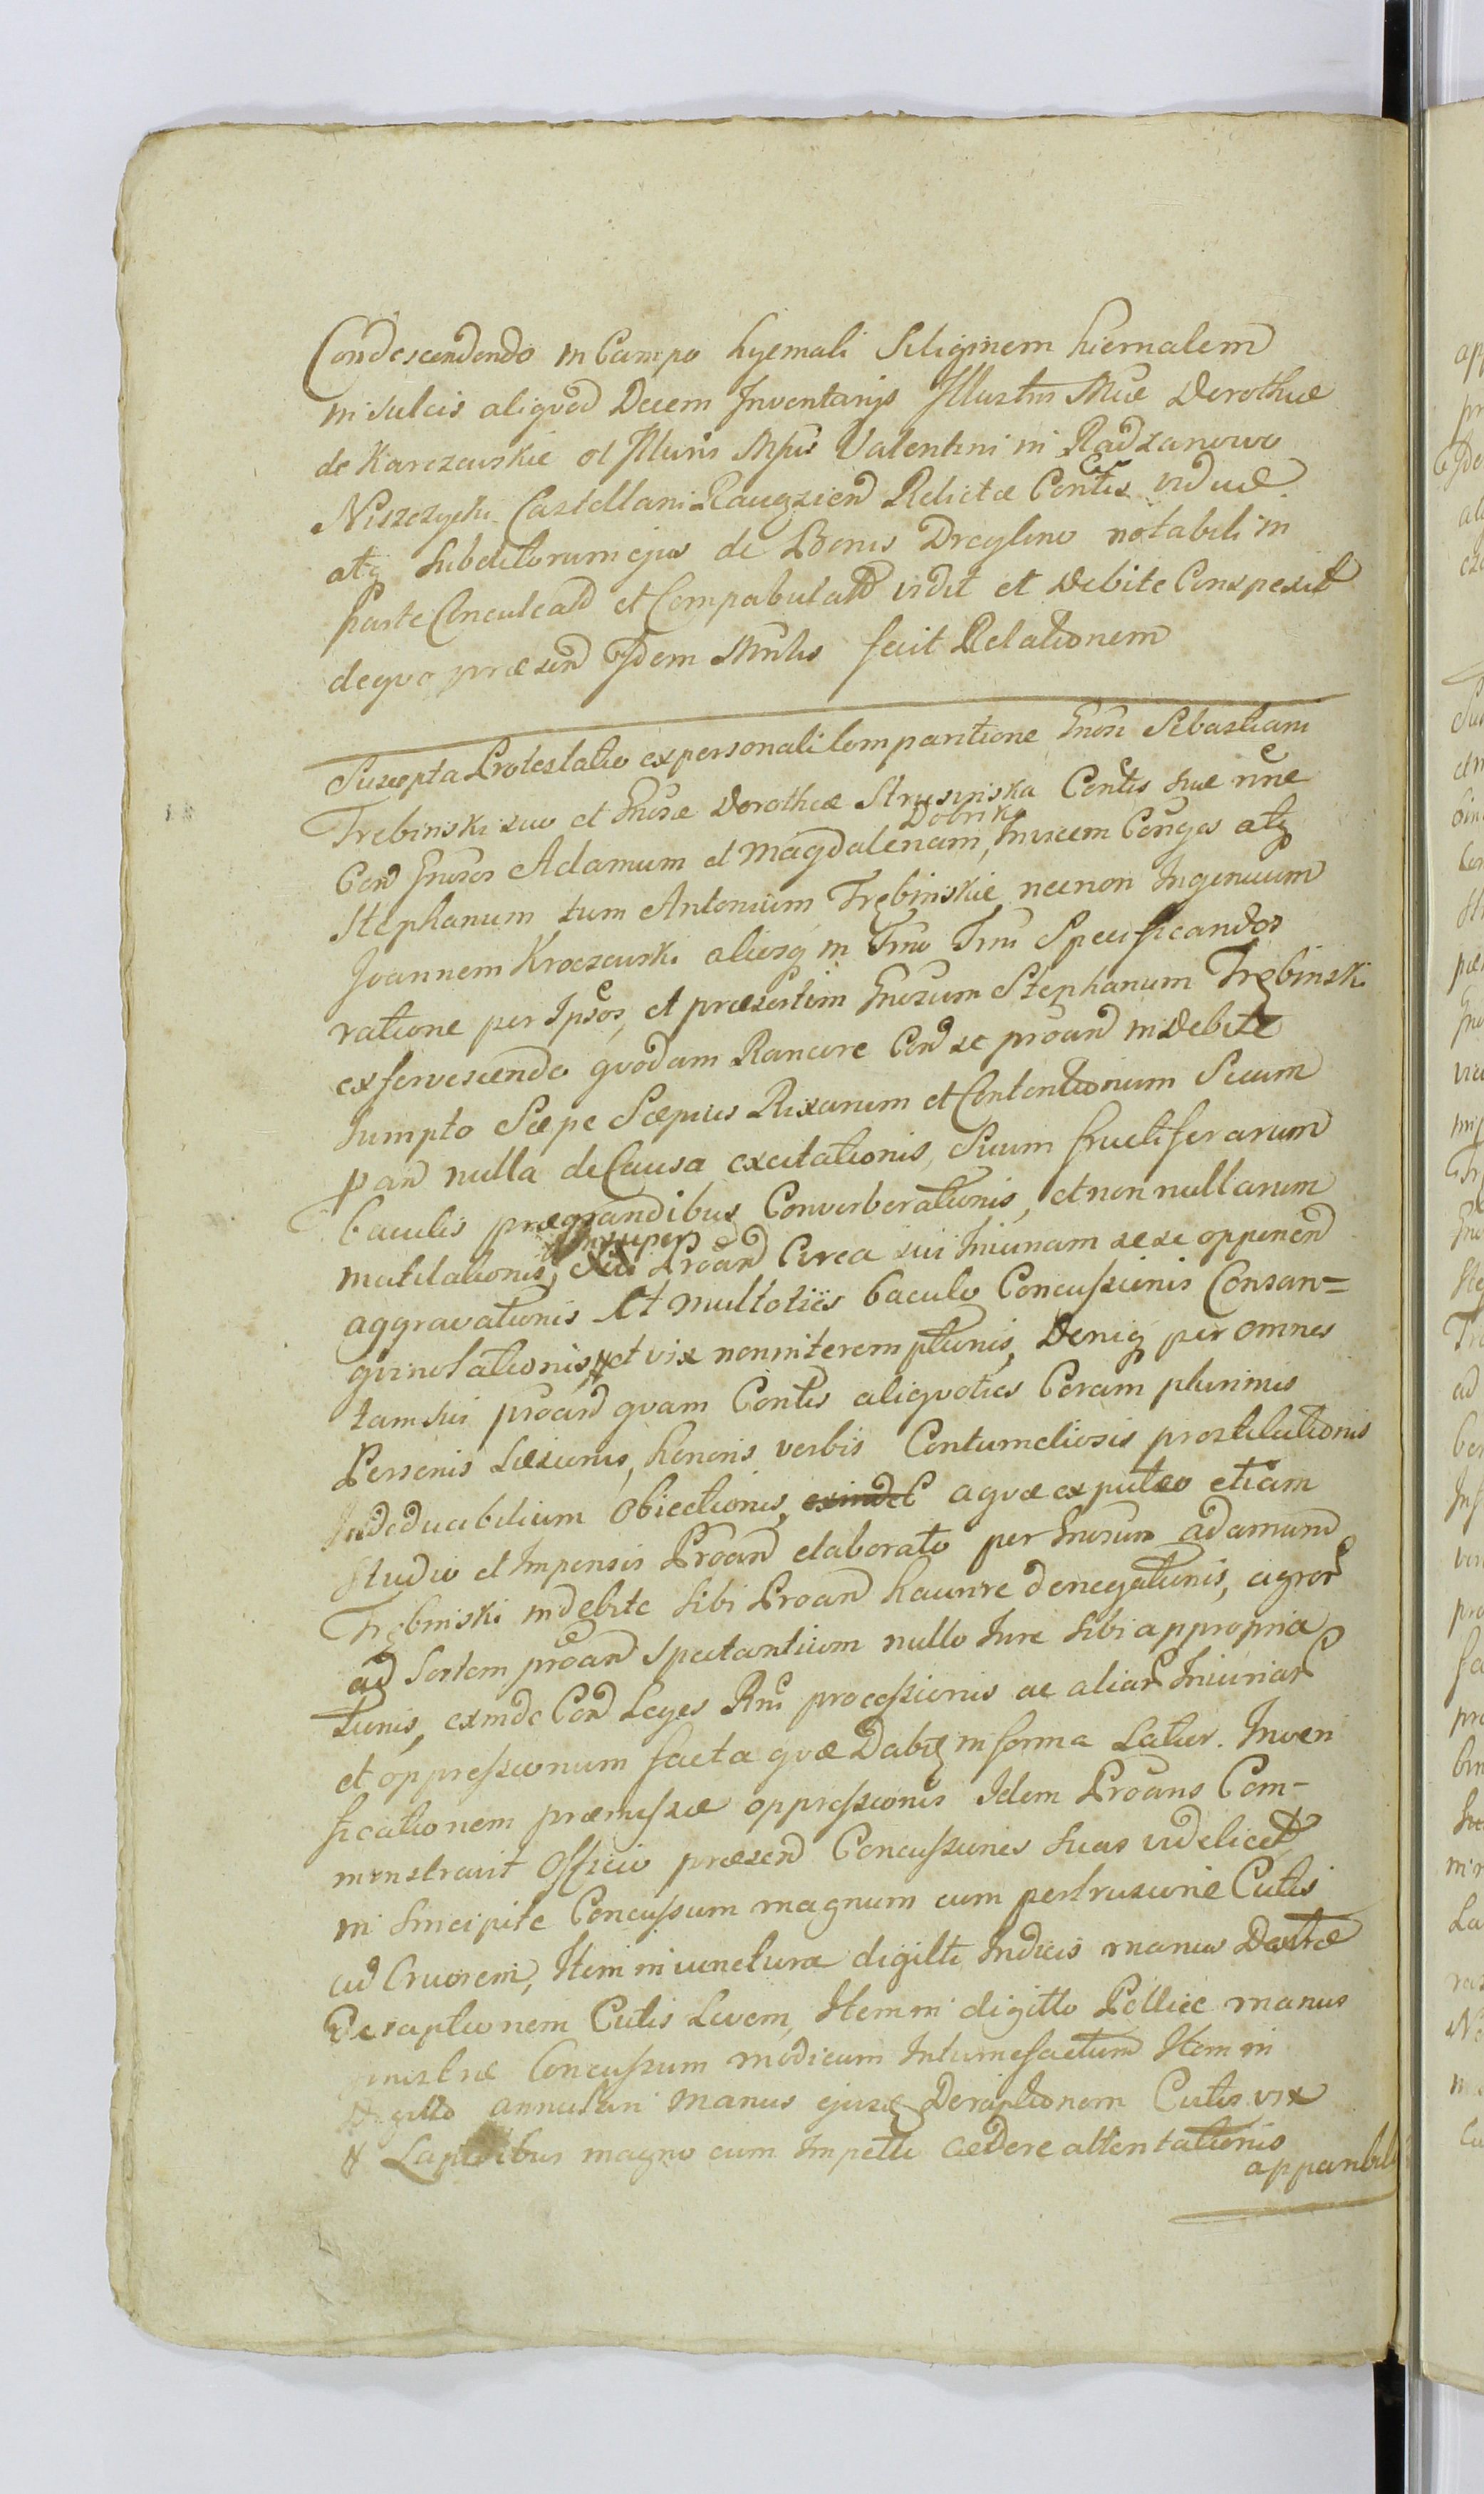 Condescendendo in Campo hyemali Siliginem hiemalem
in sulcis aliqvod Decem Inventarijs Illustris Mcæ Dorothæ
de Karczewskie ol Illuris Mfici Valentini in Radzanowo
Niszczycki Castellani Raciąz̨iens Relictæ Contis viduæ
atq subditorum ejus de Bonis Dręglino notabili in
parte Conculcatd et Compabulatd vidit et Debite Conspexit
de qvo præsend Idem Mnlis fecit Relationem
Suscepta Protestatio ex personali Comparitione Gnosi Sebastiani
Trebinski suo et Gnosæ Dorotheæ Strusinska Contis suæ nne
Con Gnosos Adamum et Magdalenam, Dobrska Invicem Conges atq
Stephanum tum Antonium Trębinskie necnon Ingenuum
Joannem Kroczewski aliosq in Tmo Tmi Specificandos
ratione per Ipsos, et præsertim Gnosum Stephanum Trębinski
exfervescendo qvodam Rancore Con se proand indebite
sumpto Sæpe Sæpius Rixarum et Contentionum Secum
pand nulla de Causa excitationis, Suum fructiferarum
baculis prægrandibus Converberationis, et non nullarum
mutilationis, Insuper Proand Circa sui Iniuriam sese opponend
aggravationis Et multoties baculo Concussionis Consan-
gvinolationis, # et vix non interemptionis, Deniq per omnes
tam sui proand qvam Contis aliqvoties Coram plurimis
Personis Læsionis, honoris verbis Contumeliosis prostitutionis
Indeducibilium Obiectionis, aqvæ ex puteo etiam
studio et Impensis Proand elaborato per Gnosum Adamum
Trębinski indebite sibi Proand haurire denegationis, agror
ad Sortem proand Spectantium nullo Iure sibi appropria
tionis, exinde Con Leges Rni processionis ac aliar Iniuriar
et oppressionum facta qvæ Dabit in forma Latior. Inveri
ficationem præmissæ oppressionis Idem Proans Com-
monstravit Officio præsend Concussiones suas videlicet
in Sincipite Concussum magnum cum pertrusione Cutis
ad Cruorem, Item in iunctura digitti Indicis manus Dextræ
Deraptionem Cutis Levem, Item in digitto Pollice manus
sinistræ Concussum modicum Intumefactum Item in
Digitto annulari manus ejusd Deraptionem Cutis vix
# Lapidibus magno cum Impetu cædere attentationis
apparibil